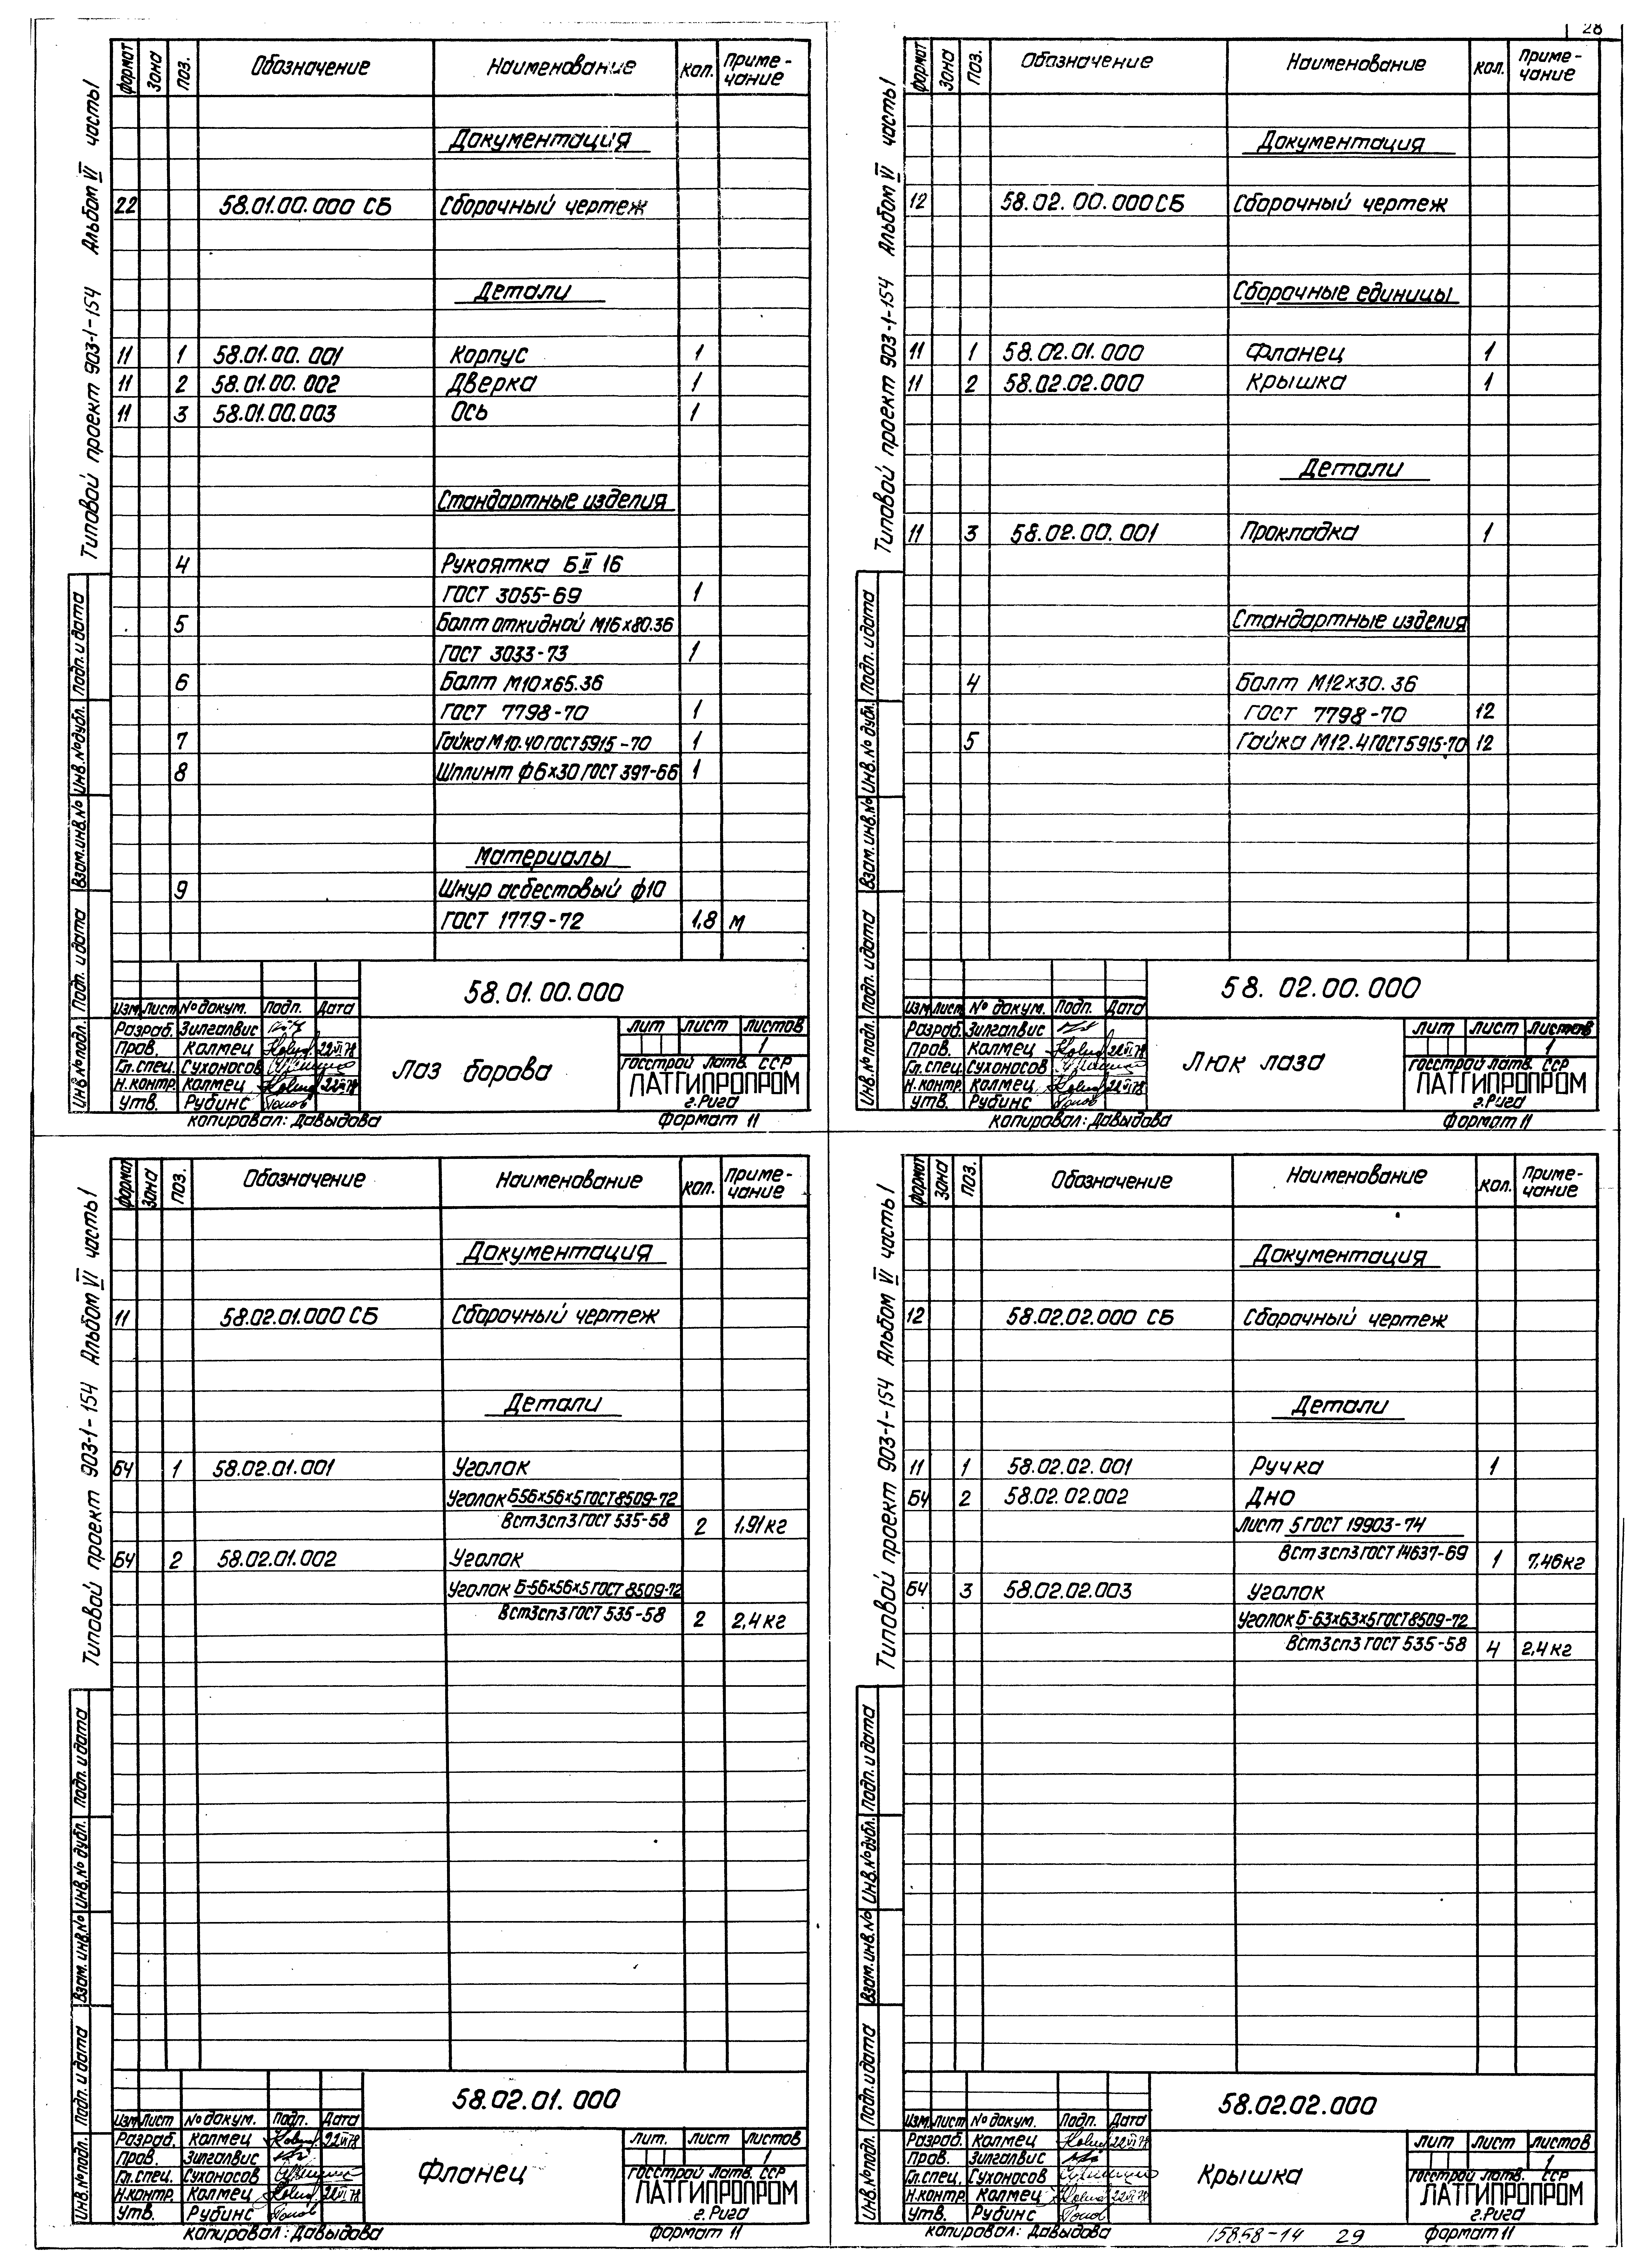 28
Типовой проект 903-1-154 Альбом VI часть I
формат Зона Поз. Обозначение Наименование Кол. Приме-
чание
Документация
22 58.01.00.000 СБ Сборочный чертеж
Детали
11 1 58.01.00.001 Корпус 1
11 2 58.01.00.002 Дверка 1
11 3 58.01.00.003 Ось 1
Стандартные изделия
4 Рукоятка Б II 16
ГОСТ 3055-69 1
5 Болт откидной М16х80.36
ГОСТ 3033-73 1
6 Болт М10х65.36
ГОСТ 7798-70 1
7 Гайка М10.40 ГОСТ 5915-70 1
8 Шплинт ф6х30 ГОСТ 397-66 1
Материалы
9 Шнур асбестовый ф10
ГОСТ 1779-72 1,8 м
Инв.№подл. Подп. и дата Взам.инв.№ Инв.№дубл. Подп. и дата
58.01.00.000
Изм. Лист № докум. Подп. Дата
Разраб. Зилгалвис
Пров. Калмец 22 VI 78
Гл.спец. Сухоносов
Н.контр. Калмец 22 VI 78
Утв. Рубинс
Лаз борова
лит лист листов
1
Госстрой Латв. ССР
ЛАТГИПРОПРОМ
г.Рига
копировал: Давыдова формат 11
Типовой проект 903-1-154 Альбом VI часть I
формат Зона Поз. Обозначение Наименование Кол. Приме-
чание
Документация
12 58.02.00.000 СБ Сборочный чертеж
Сборочные единицы
11 1 58.02.01.000 Фланец 1
11 2 58.02.02.000 Крышка 1
Детали
11 3 58.02.00.001 Прокладка 1
Стандартные изделия
4 Болт М12х30.36
ГОСТ 7798-70 12
5 Гайка М12.4 ГОСТ 5915-70 12
Инв.№подл. Подп. и дата Взам.инв.№ Инв.№дубл. Подп. и дата
58.02.00.000
Изм. Лист № докум. Подп. Дата
Разраб. Зилгалвис
Пров. Калмец 22 VI 78
Гл.спец. Сухоносов
Н.контр. Калмец 22 VI 78
Утв. Рубинс
Люк лаза
лит лист листов
1
Госстрой Латв. ССР
ЛАТГИПРОПРОМ
г.Рига
копировал: Давыдова формат 11
Типовой проект 903-1-154 Альбом VI часть I
формат Зона Поз. Обозначение Наименование Кол. Приме-
чание
Документация
11 58.02.01.000 СБ Сборочный чертеж
Детали
БЧ 1 58.02.01.001 Уголок
Уголок Б56х56х5 ГОСТ 8509-72
Вст3сп3 ГОСТ 535-58 2 1,91 кг
БЧ 2 58.02.01.002 Уголок
Уголок Б-56х56х5 ГОСТ 8509-72
Вст3сп3 ГОСТ 535-58 2 2,4 кг
Инв.№подл. Подп. и дата Взам.инв.№ Инв.№дубл. Подп. и дата
58.02.01.000
Изм. Лист № докум. Подп. Дата
Разраб. Калмец 22 VI 78
Пров. Зилгалвис
Гл.спец. Сухоносов
Н.контр. Калмец 22 VI 78
Утв. Рубинс
Фланец
лит. лист листов
1
Госстрой Латв. ССР
ЛАТГИПРОПРОМ
г.Рига
копировал: Давыдова формат 11
Типовой проект 903-1-154 Альбом VI часть I
формат Зона Поз. Обозначение Наименование Кол. Приме-
чание
Документация
12 58.02.02.000 СБ Сборочный чертеж
Детали
11 1 58.02.02.001 Ручка 1
БЧ 2 58.02.02.002 Дно
Лист 5 ГОСТ 19903-74
Вст3сп3 ГОСТ 14637-69 1 7,46 кг
БЧ 3 58.02.02.003 Уголок
Уголок Б-63х63х5 ГОСТ 8509-72
Вст3сп3 ГОСТ 535-58 4 2,4 кг
Инв.№подл. Подп. и дата Взам.инв.№ Инв.№дубл. Подп. и дата
58.02.02.000
Изм. Лист № докум. Подп. Дата
Разраб. Калмец 22 VI 78
Пров. Зилгалвис
Гл.спец. Сухоносов
Н.контр. Калмец 22 VI 78
Утв. Рубинс
Крышка
лит лист листов
1
Госстрой Латв. ССР
ЛАТГИПРОПРОМ
г.Рига
копировал: Давыдова 15858-14 29 формат 11